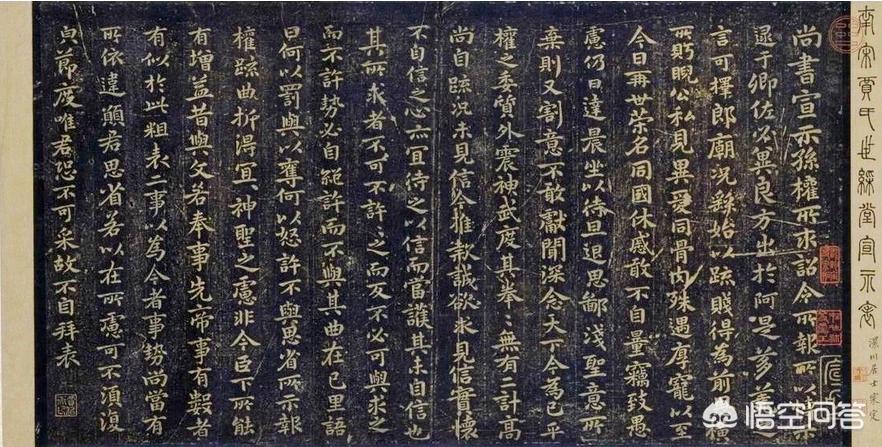 南宋賈氏世綵堂宣示表
川居士宋定
尚書宣示孫權所求詔令所報所以
逮于卿佐必冀良方出於阿是芻蕘
言可擇郎廟況繇始以疏賤得為前恩橫
所盱睨公私見異愛同骨肉殊遇厚寵以至
今日再世榮名同國休慼敢不自量竊致愚
慮仍日達晨坐以待旦退思鄙淺聖意所
棄則又割意不敢獻聞深念天下今為已平
權之委質外震神武度其拳〻無有二計高
尚自疏況未見信今推款誠欲求見信實懷
不自信之心亦宜待之以信而當護其未自信也
其所求者不可不許〻之而反不必可與求之
而不許勢必自絕許而不與其曲在己里語
曰何以罰與以奪何以怒許不與思省所示報
權疏曲折得宜〻神聖之慮非今臣下所能
有增益昔與文若奉事先帝事有數者
有似於此粗表二事以為今者事勢尚當有
所依違願君思省若以在所慮可不須復
白節度唯君恐不可采故不自拜表
悟空问答